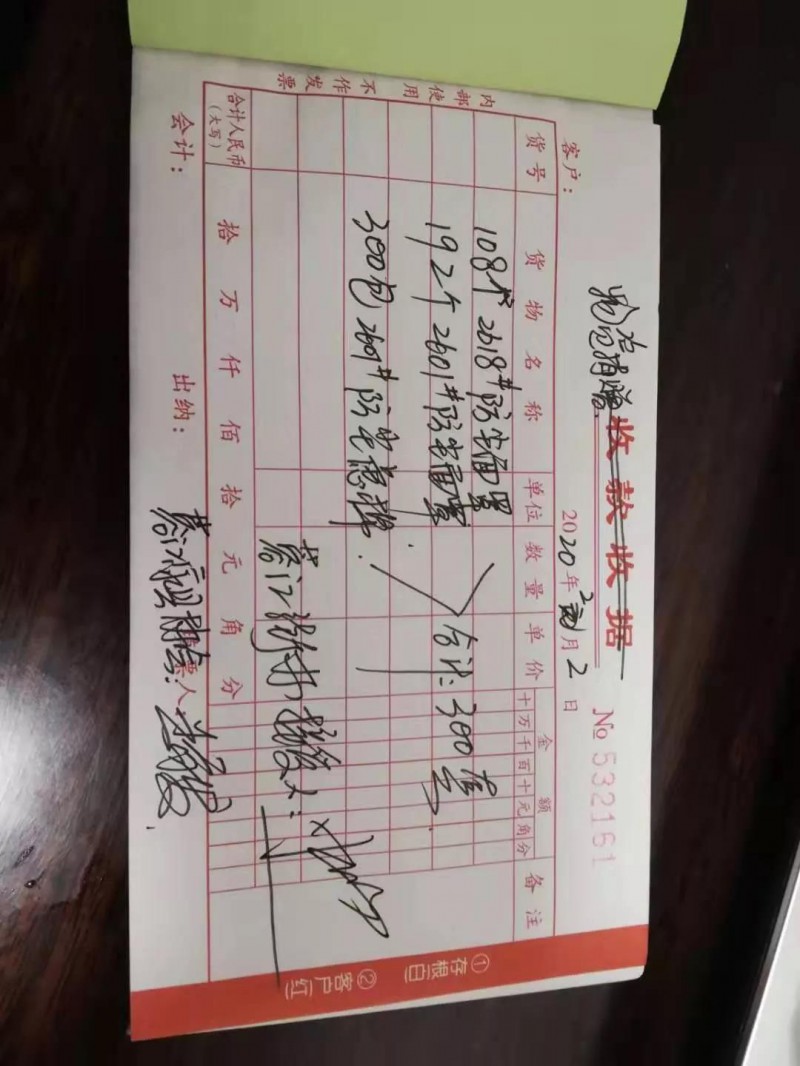 收款收据
No 532161
客户：
2020年2月2日
货号 货物名称 单位 数量 单价 金额 备注
十万千百十元角分
108个 2618#防尘面罩
192个 2601#防尘面罩
合计：300套
300包 2601#防尘
合计人民币
(大写)
拾 万 仟 佰 拾 元 角 分
会计：
出纳：
票人
内部使用
不作发票
①存根(白) ②客户(红)